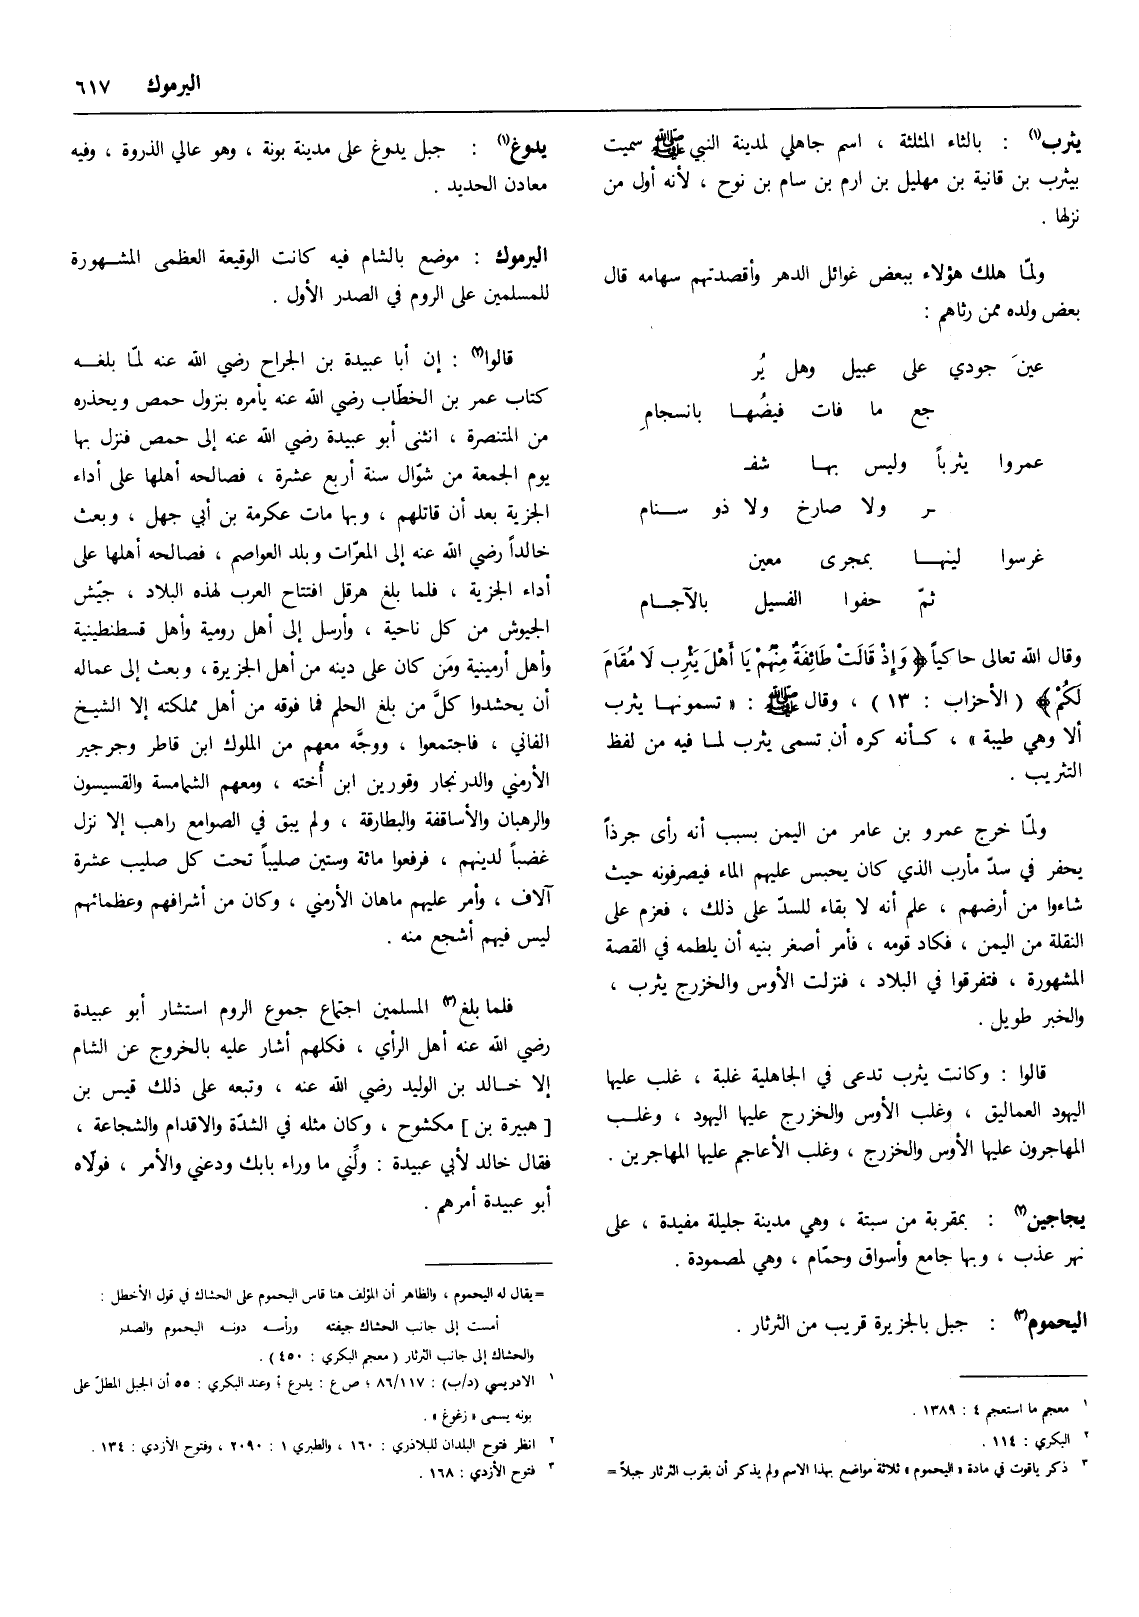 اليرموك ٦١٧
يثرب(١) : بالثاء المثلثة ، اسم جاهلي لمدينة النبي ﷺ سميت
بيثرب بن قانية بن مهليل بن ارم بن سام بن نوح ، لأنه أول من
نزلها .
ولمّا هلك هؤلاء ببعض غوائل الدهر وأقصدتهم سهامه قال
بعض ولده ممن رثاهم :
عينَ جودي على عبيل وهل يُر
جع ما فات فيضُها بانسجامِ
عمروا يثرباً وليس بها شفـ
ـر ولا صارخ ولا ذو سنام
غرسوا لينها بمجرى معين
ثمّ حفوا الفسيل بالآجام
وقال الله تعالى حاكياً ﴿ وَإِذْ قَالَتْ طَائِفَةٌ مِنْهُمْ يَا أَهْلَ يَثْرِب لَا مُقَامَ
لَكُمْ ﴾ ( الأحزاب : ١٣ ) ، وقال ﷺ : « تسمونها يثرب
ألا وهي طيبة » ، كأنه كره أن تسمى يثرب لما فيه من لفظ
التثريب .
ولمّا خرج عمرو بن عامر من اليمن بسبب أنه رأى جرذاً
يحفر في سدّ مأرب الذي كان يحبس عليهم الماء فيصرفونه حيث
شاءوا من أرضهم ، علم أنه لا بقاء للسدّ على ذلك ، فعزم على
النقلة من اليمن ، فكاد قومه ، فأمر أصغر بنيه أن يلطمه في القصة
المشهورة ، فتفرقوا في البلاد ، فنزلت الأوس والخزرج يثرب ،
والخبر طويل .
قالوا : وكانت يثرب تدعى في الجاهلية غلبة ، غلب عليها
اليهود العماليق ، وغلب الأوس والخزرج عليها اليهود ، وغلب
المهاجرون عليها الأوس والخزرج ، وغلب الأعاجم عليها المهاجرين .
يجاجين(٢) : بمقربة من سبتة ، وهي مدينة جليلة مفيدة ، على
نهر عذب ، وبها جامع وأسواق وحمّام ، وهي لمصمودة .
اليحموم(٣) : جبل بالجزيرة قريب من الثرثار .
١ معجم ما استعجم ٤ : ١٣٨٩ .
٢ البكري : ١١٤ .
٣ ذكر ياقوت في مادة « اليحموم » ثلاثة مواضع بهذا الاسم ولم يذكر أن بقرب الثرثار جبلاً =
يدوغ(١) : جبل يدوغ على مدينة بونة ، وهو عالي الذروة ، وفيه
معادن الحديد .
اليرموك : موضع بالشام فيه كانت الوقيعة العظمى المشهورة
للمسلمين على الروم في الصدر الأول .
قالوا(٢) : إن أبا عبيدة بن الجراح رضي الله عنه لمّا بلغه
كتاب عمر بن الخطّاب رضي الله عنه يأمره بنزول حمص ويحذره
من المتنصرة ، انثنى أبو عبيدة رضي الله عنه إلى حمص فنزل بها
يوم الجمعة من شوّال سنة أربع عشرة ، فصالحه أهلها على أداء
الجزية بعد أن قاتلهم ، وبها مات عكرمة بن أبي جهل ، وبعث
خالداً رضي الله عنه إلى المعرّات وبلد العواصم ، فصالحه أهلها على
أداء الجزية ، فلما بلغ هرقل افتتاح العرب لهذه البلاد ، جيّش
الجيوش من كل ناحية ، وأرسل إلى أهل رومية وأهل قسطنطينية
وأهل أرمينية ومَن كان على دينه من أهل الجزيرة ، وبعث إلى عماله
أن يحشدوا كلَّ من بلغ الحلم فما فوقه من أهل مملكته إلا الشيخ
الفاني ، فاجتمعوا ، ووجَّه معهم من الملوك ابن قاطر وجرجير
الأرمني والدرنجار وقورين ابن أُخته ، ومعهم الشمامسة والقسيسون
والرهبان والأساقفة والبطارقة ، ولم يبق في الصوامع راهب إلا نزل
غضباً لدينهم ، فرفعوا مائة وستين صليباً تحت كل صليب عشرة
آلاف ، وأمر عليهم ماهان الأرمني ، وكان من أشرافهم وعظمائهم
ليس فيهم أشجع منه .
فلما بلغ(٣) المسلمين اجتماع جموع الروم استشار أبو عبيدة
رضي الله عنه أهل الرأي ، فكلهم أشار عليه بالخروج عن الشام
إلا خالد بن الوليد رضي الله عنه ، وتبعه على ذلك قيس بن
[ هبيرة بن ] مكشوح ، وكان مثله في الشدّة والاقدام والشجاعة ،
فقال خالد لأبي عبيدة : ولِّني ما وراء بابك ودعني والأمر ، فولّاه
أبو عبيدة أمرهم .
= يقال له اليحموم ، والظاهر أن المؤلف هنا قاس اليحموم على الحشاك في قول الأخطل :
أمست إلى جانب الحشاك جيفته ورأسه دونه اليحموم والصدر
والحشاك إلى جانب الثرثار ( معجم البكري : ٤٥٠ ) .
١ الادريسي (د/ب) : ٨٦/١١٧ ؛ ص ع : يدرع ؛ وعند البكري : ٥٥ أن الجبل المطلّ على
بونه يسمى « زغوغ » .
٢ انظر فتوح البلدان للبلاذري : ١٦٠ ، والطبري ١ : ٢٠٩٠ ، وفتوح الأزدي : ١٣٤ .
٣ فتوح الأزدي : ١٦٨ .